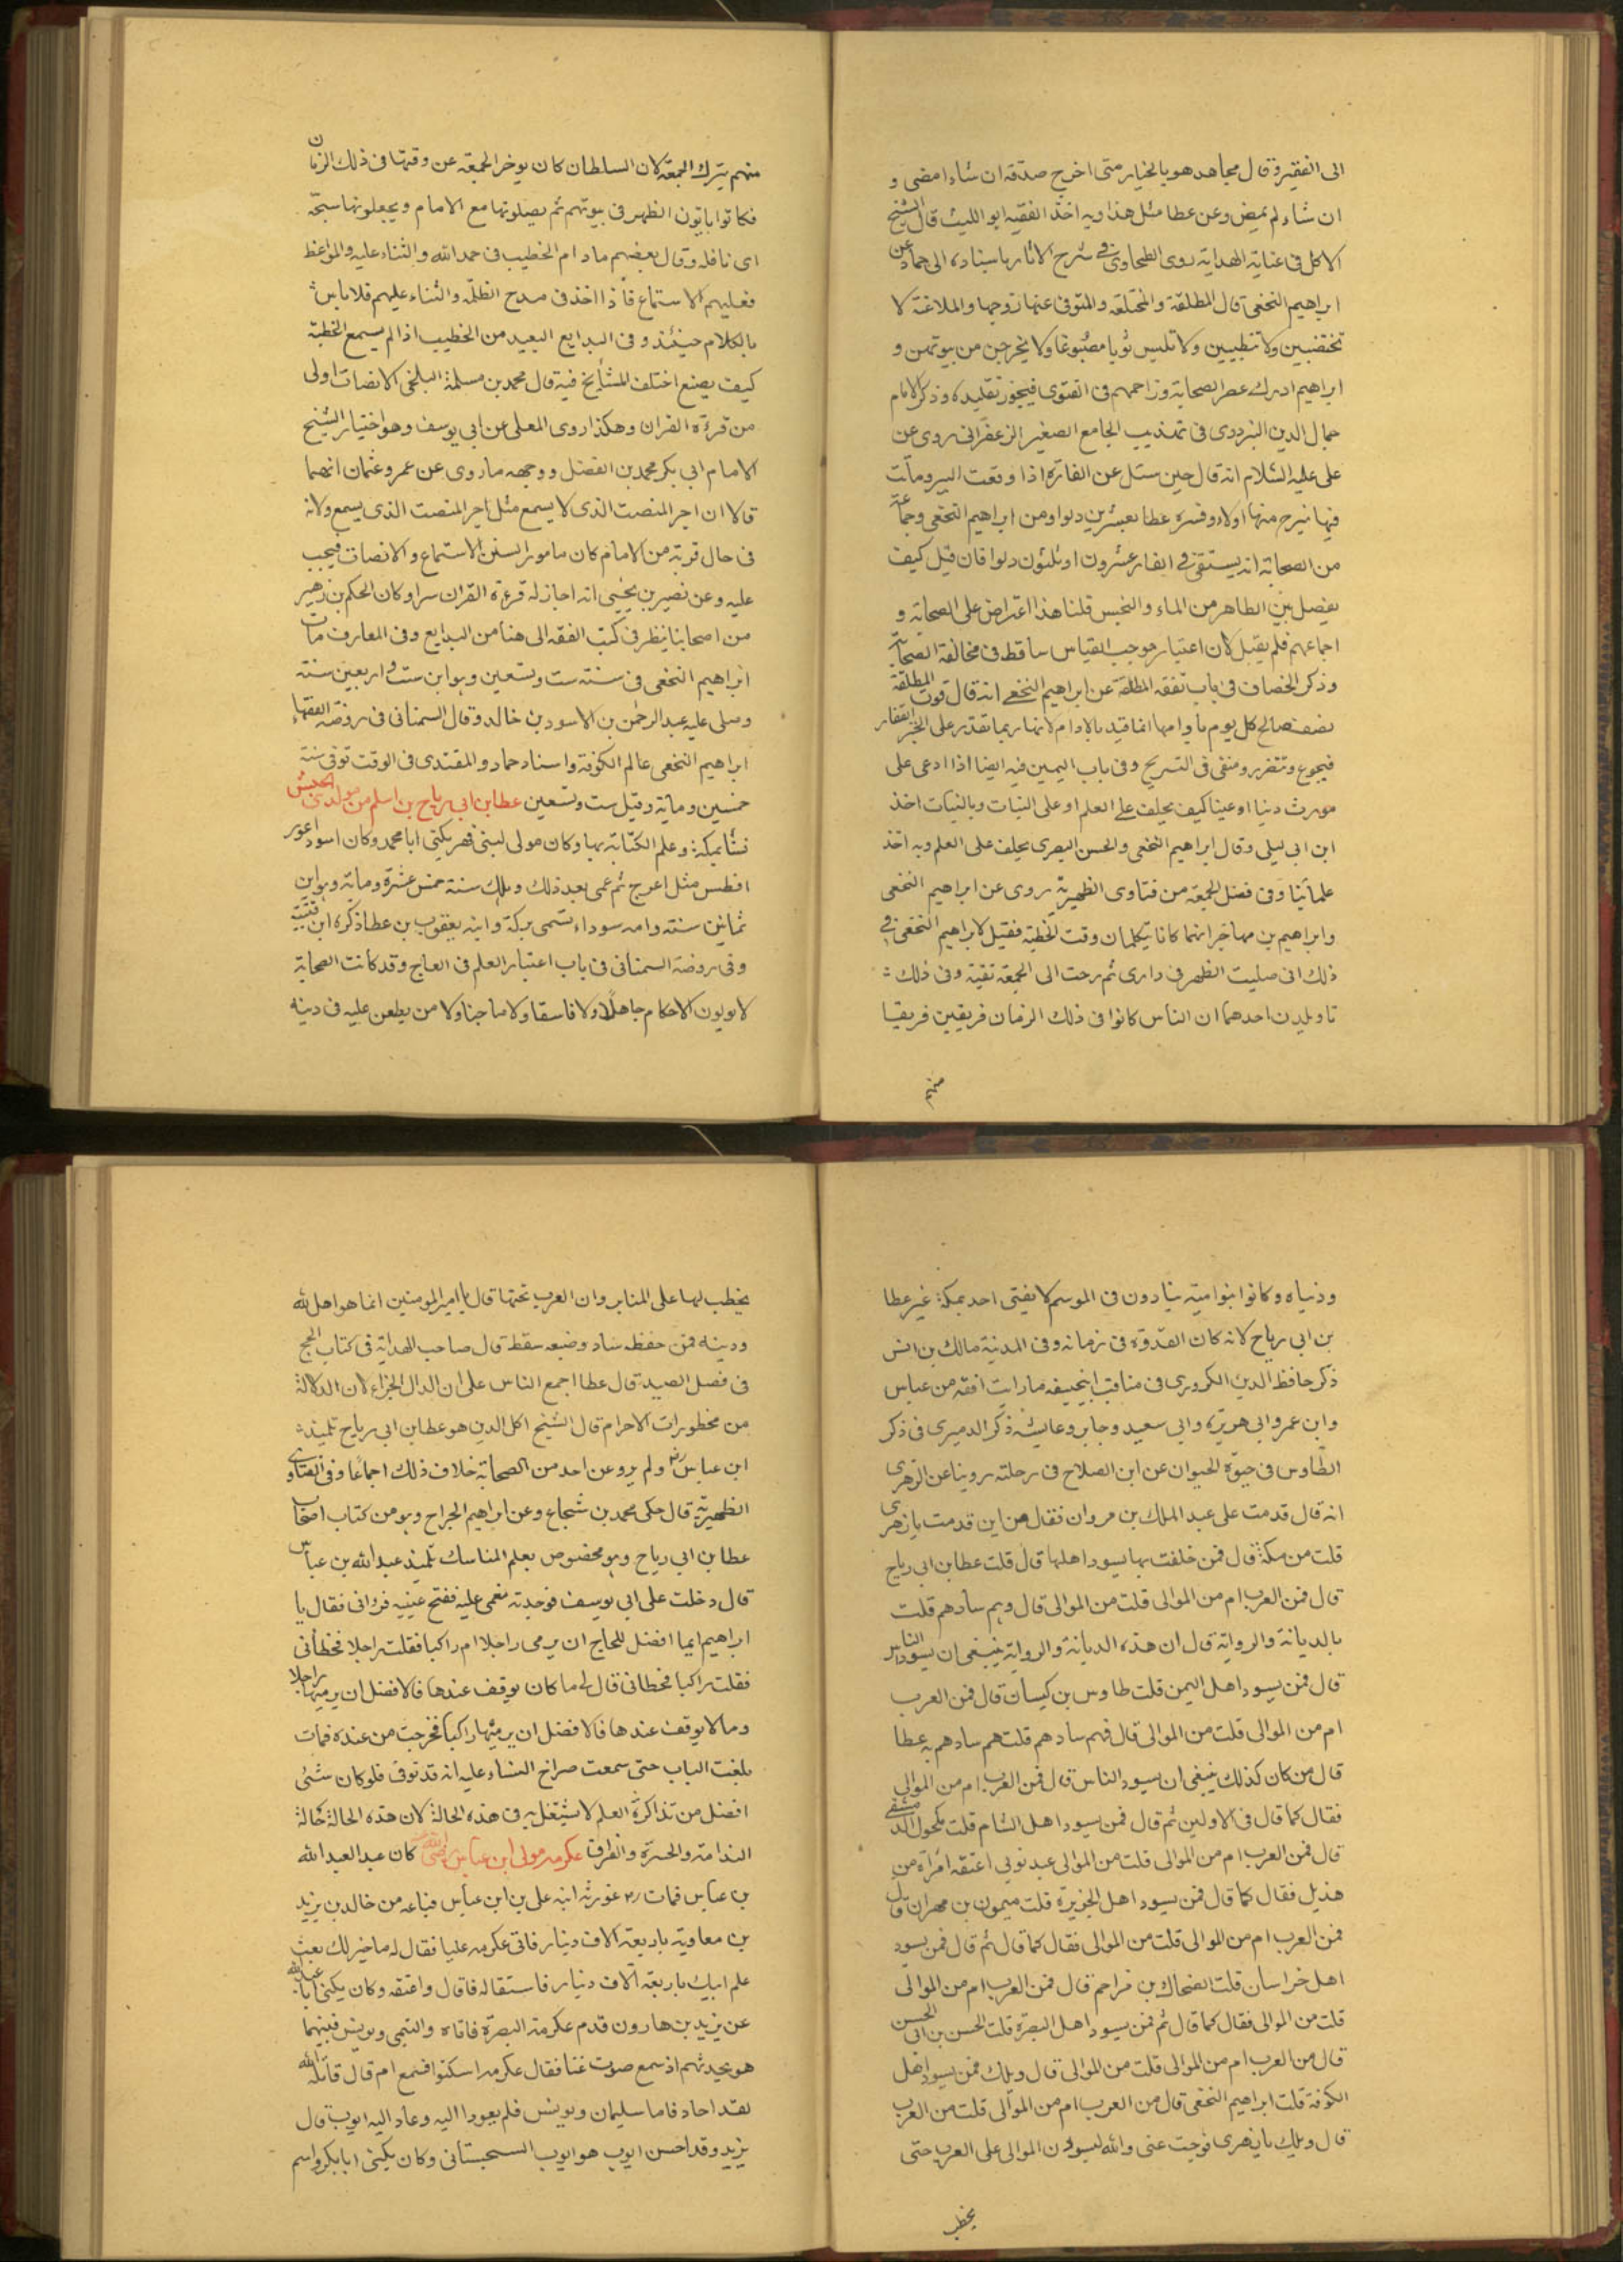 الى الفقير وقال مجاهد هو بالخيار متى اخرج صدقة ان شاء امضى و
ان شاء لم يمض وعن عطا مثل هذا وبه اخذ الفقيه ابو الليث قال الشيخ
الاكل فى عناية الهداية روى الطحاوى فى شرح الاثار باسناده الى حماد عن
ابراهيم النخعى قال المطلقة والمختلعة والمتوفى عنها زوجها والملاعنة لا
تختضبين ولا تتطيبين ولا تلبس ثوبا مصبوغا ولا يخرجن من بيوتهن و
ابراهيم ادرك عصر الصحابة وزاحمهم فى الفتوى فيجوز تقليده وذكر الامام
جمال الدين البزدوى فى تهذيب الجامع الصغير الزعفرانى روى عن
على عليه السلام انه قال حين سئل عن الفارة اذا وقعت البير وماتت
فيها نيزح منها دلاء وفسره عطا بعشرين دلوا ومن ابراهيم النخعى وجماعة
من الصحابة انه يستقى فى الفار عشرون او ثلثون دلوا فان قيل كيف
يفصل بين الطاهر من الماء والنجس قلنا هذا اعتراض على الصحابة و
اجماعهم فلم يقبل لان اعتبار موجب القياس ساقط فى مخالفة الصحابة
وذكر الخصاف فى باب نفقة المطلقة عن ابراهيم النخعى انه قال قوت المطلقة
نصف صاع كل يوم بادامها انما قيد بالادام لانها ربما تقدر على الخبز القفار
فيجوع وتتضرر ومنفى فى التسريح وفى باب اليمين فيه ايضا اذا ادعى على
مورث دينا او عينا كيف يحلف على العلم او على البتات وبالبتات اخذ
ابن ابى ليلى وقال ابراهيم النخعى والحسن البصرى يحلف على العلم وبه اخذ
علمائنا وفى فصل الجمعة من فتاوى الظهيرية روى عن ابراهيم النخعى
وابراهيم بن مهاجر انهما كانا يتكلمان وقت الخطبة فقيل لابراهيم النخعى فى
ذلك انى صليت الظهر فى دارى ثم رحت الى الجمعة تقية وفى ذلك
تاويلان احدهما ان الناس كانوا فى ذلك الزمان فريقين فريقا
منهم
منهم يترك الجمعة لان السلطان كان يوخر الجمعة عن وقتها فى ذلك الزمان
فكانوا ياتون الظهر فى بيوتهم ثم يصلونها مع الامام ويجعلونها سبحة
اى نافلة وقال بعضهم مادام الخطيب فى حمد الله والثناء عليه والمواعظ
فعليهم الاستماع فاذا اخذ فى مدح الظلمة والثناء عليهم فلا باس
بالكلام حينئذ وفى البدايع البعيد من الخطيب اذا لم يسمع الخطبة
كيف يصنع اختلف المشايخ فيه قال محمد بن مسلمة البلخى الانصات اولى
من قراءة القران وهكذا روى المعلى عن ابى يوسف وهو اختيار الشيخ
الامام ابى بكر محمد بن الفضل ووجهه ما روى عن عمر وعثمان انهما
قالا ان اجر المنصت الذى لا يسمع مثل اجر المنصت الذى يسمع ولانه
فى حال قربه من الامام كان مامورا بسنن الاستماع والانصات فيجب
عليه وعن نصير بن يحيى انه اجاز له قراءة القران سرا وكان الحكم بن زهير
من اصحابنا ينظر فى كتب الفقه الى هنا من البدايع وفى المعارف مات
ابراهيم النخعى فى سنة ست وتسعين وهو ابن ست واربعين سنة
وصلى عليه عبد الرحمن بن الاسود بن خالد وقال السمنانى فى روضة الفقهاء
ابراهيم النخعى عالم الكوفة واسناد حماد والمقتدى فى الوقت توفى سنة
خمسين وماية وقيل ست وتسعين عطا بن ابى رباح بن اسلم من مولدى الجيش
نشا بمكة وعلم الكتابة بها وكان مولى لبنى فهر يكنى ابا محمد وكان اسود اعور
افطس مثل اعرج ثم عمى بعد ذلك وهلك سنة خمس عشرة وماية وهو ابن
ثمانين سنة وامه سوداء تسمى بركة وابنه يعقوب بن عطا ذكره ابن قتيبة
وفى روضة السمنانى فى باب اعتبار العلم فى العاج وقد كانت الصحابة
لا يولون الاحكام جاهلا ولا فاسقا ولا ماجنا ولا من يطعن عليه فى دينه
ودنياه وكانوا بنوا امية ينادون فى الموسم لا يفتى احد بمكة غير عطا
بن ابى رباح لانه كان القدوة فى زمانه وفى المدينة مالك بن انس
ذكر حافظ الدين الكردرى فى مناقب ابى حنيفه ما رايت افقه من عباس
وابن عمر وابى هريرة وابى سعيد وجابر وعايشة ذكر الدميرى فى ذكر
الطاوس فى حيوة الحيوان عن ابن الصلاح فى رحلته روينا عن الزهرى
انه قال قدمت على عبد الملك بن مروان فقال من اين قدمت يا زهرى
قلت من مكة قال فمن خلفت بها يسود اهلها قال قلت عطا بن ابى رباح
قال فمن العرب ام من الموالى قلت من الموالى قال وبم سادهم قلت
بالديانة والرواية قال ان هذه الديانة والرواية ينبغى ان يسود الناس
قال فمن يسود اهل اليمن قلت طاوس بن كيسان قال فمن العرب
ام من الموالى قلت من الموالى قال فبم سادهم قلت هم سادهم به عطا
قال من كان كذلك ينبغى ان يسود الناس قال فمن العرب ام من الموالى
فقال كما قال فى الاولين ثم قال فمن يسود اهل الشام قلت مكحول الدمشقى
قال فمن العرب ام من الموالى قلت من الموالى عبد نوبى اعتقه امرأة من
هذيل فقال كما قال فمن يسود اهل الجزيرة قلت ميمون بن مهران قال
فمن العرب ام من الموالى قلت من الموالى فقال كما قال ثم قال فمن يسود
اهل خراسان قلت الضحاك بن مزاحم قال فمن العرب ام من الموالى
قلت من الموالى فقال كما قال ثم فمن يسود اهل البصرة قلت الحسن بن ابى الحسن
قال من العرب ام من الموالى قلت من الموالى قال ويلك فمن يسود اهل
الكوفة قلت ابراهيم النخعى قال من العرب ام من الموالى قلت من العرب
قال ويلك يا زهرى فرجت عنى والله ليسودن الموالى على العرب حتى
يخطب
يخطب لها على المنابر وان العرب تحتها قال يا امير المومنين انما هو اهل لله
ودينه فمن حفظه ساد وضيعه سقط قال صاحب الهداية فى كتاب الحج
فى فصل الصيد قال عطا اجمع الناس على ان الدال الجزاء لان الدلالة
من محظورات الاحرام قال الشيخ اكل الدين هو عطا بن ابى رباح تلميذ
ابن عباس رض ولم يرو عن احد من الصحابة خلاف ذلك اجماعا وفى الفتاوى
الظهيرية قال حكى محمد بن شجاع وعن ابراهيم الجراح وهو من كتاب اصحاب
عطا بن ابى رباح وهو مخصوص بعلم المناسك تلميذ عبد الله بن عباس
قال دخلت على ابى يوسف فوجدته مغمى عليه ففتح عينيه فرانى فقال يا
ابراهيم ايما افضل للحاج ان يرمى راجلا ام راكبا فقلت راجلا فخطأنى
فقلت راكبا فخطانى قال لى ما كان يوقف عندها فالافضل ان يرميها راجلا
وما لا يوقف عندها فالافضل ان يرميها راكبا فخرجت من عنده فمات
بلغت الباب حتى سمعت صراخ النساء عليه انه قد توفى فلو كان شئى
افضل من تذاكرة العلم لاشتغل به فى هذه الحالة لان هذه الحالة حالة
الندامة والحسرة والفراق عكرمه مولى ابن عباس رضى الله كان عبد العبد الله
بن عباس فمات رض فورثه ابنه على بن ابن عباس فباعه من خالد بن يزيد
بن معاوية باربعة الاف دينار فاتى عكرمه عليا فقال له ما خير لك بعت
علم ابيك باربعة آلاف دينار فاستقاله فاقال واعتقه وكان يكنى ابا عبد الله
عن يزيد بن هارون قدم عكرمه البصرة فاتاه والتيمى ويونس فبينهما
هو يحدثهم اذ سمع صوت غنا فقال عكرمه اسكتوا فنسمع ام قال قاتله الله
لقد اجاد فاما سليمان ويونس فلم يعودا اليه وعاد اليه ايوب قال
يزيد وقد احسن ايوب هو ايوب السجستانى وكان يكنى ابا بكر واسم